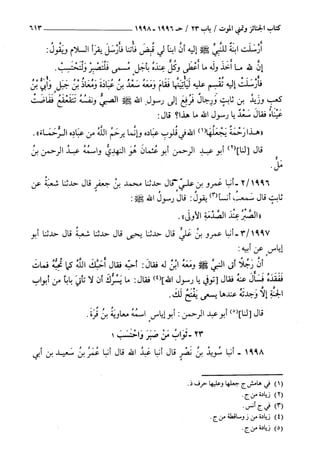 كتاب الجنائز وتمني الموت / باب ٢٣ / حـ ١٩٩٦ - ١٩٩٨ ــــــــــــــ ٦١٣
أرسلت ابنة للنبي ﷺ إليه أن ابنا لي قُبض فأتنا فأرسل يقرأ السلام ويقول:
إن لله ما أخذ وله ما أعطى وكل عنده بأجل مسمى فلتصبر ولتحتسب.
فأرسلت إليه تُقسم عليه ليأتينها فقام ومعه سعد بن عبادة ومعاذ بن جبل وأبي بن
كعب وزيد بن ثابت ورجال فرُفع إلى رسول الله ﷺ الصبي ونفسه تتقعقع ففاضت
عيناه فقال سعد يا رسول الله ما هذا؟ قال:
«هذا رحمة يجعلها(١) الله في قلوب عباده وإنما يرحم الله من عباده الرحماء».
قال [لنا](٢) أبو عبد الرحمن أبو عثمان هو النهدي واسمه عبد الرحمن بن
مل.
٢/١٩٩٦ - أنبا عمرو بن علي قال حدثنا محمد بن جعفر قال حدثنا شعبة عن
ثابت قال سمعت أنسا(٣) يقول: قال رسول الله ﷺ:
«الصبر عند الصدمة الأولى».
٣/١٩٩٧ - أنبا عمرو بن علي قال حدثنا يحيى قال حدثنا شعبة قال حدثنا أبو
إياس عن أبيه:
أن رجلا أتى النبي ﷺ ومعه ابن له فقال: أتحبه فقال أحبك الله كما تحبه فمات
ففقده فسأل عنه فقال [توفي يا رسول الله](٤) فقال: ما يسرك أن لا تأتي بابا من أبواب
الجنة إلا وجدته عندها يسعى يفتح لك.
قال [لنا](٥) أبو عبد الرحمن: أبو إياس اسمه معاوية بن قرة.
٢٣ - ثواب من صبر واحتسب ١
١٩٩٨ - أنبا سويد بن نصر قال أنبا عبد الله قال أنبا عمر بن سعيد بن أبي
(١) في هامش ج جعلها وعليها حرف ذ.
(٢) زيادة من ج.
(٣) في ج أنس.
(٤) زيادة من ز وساقطة من ج.
(٥) زيادة من ج.